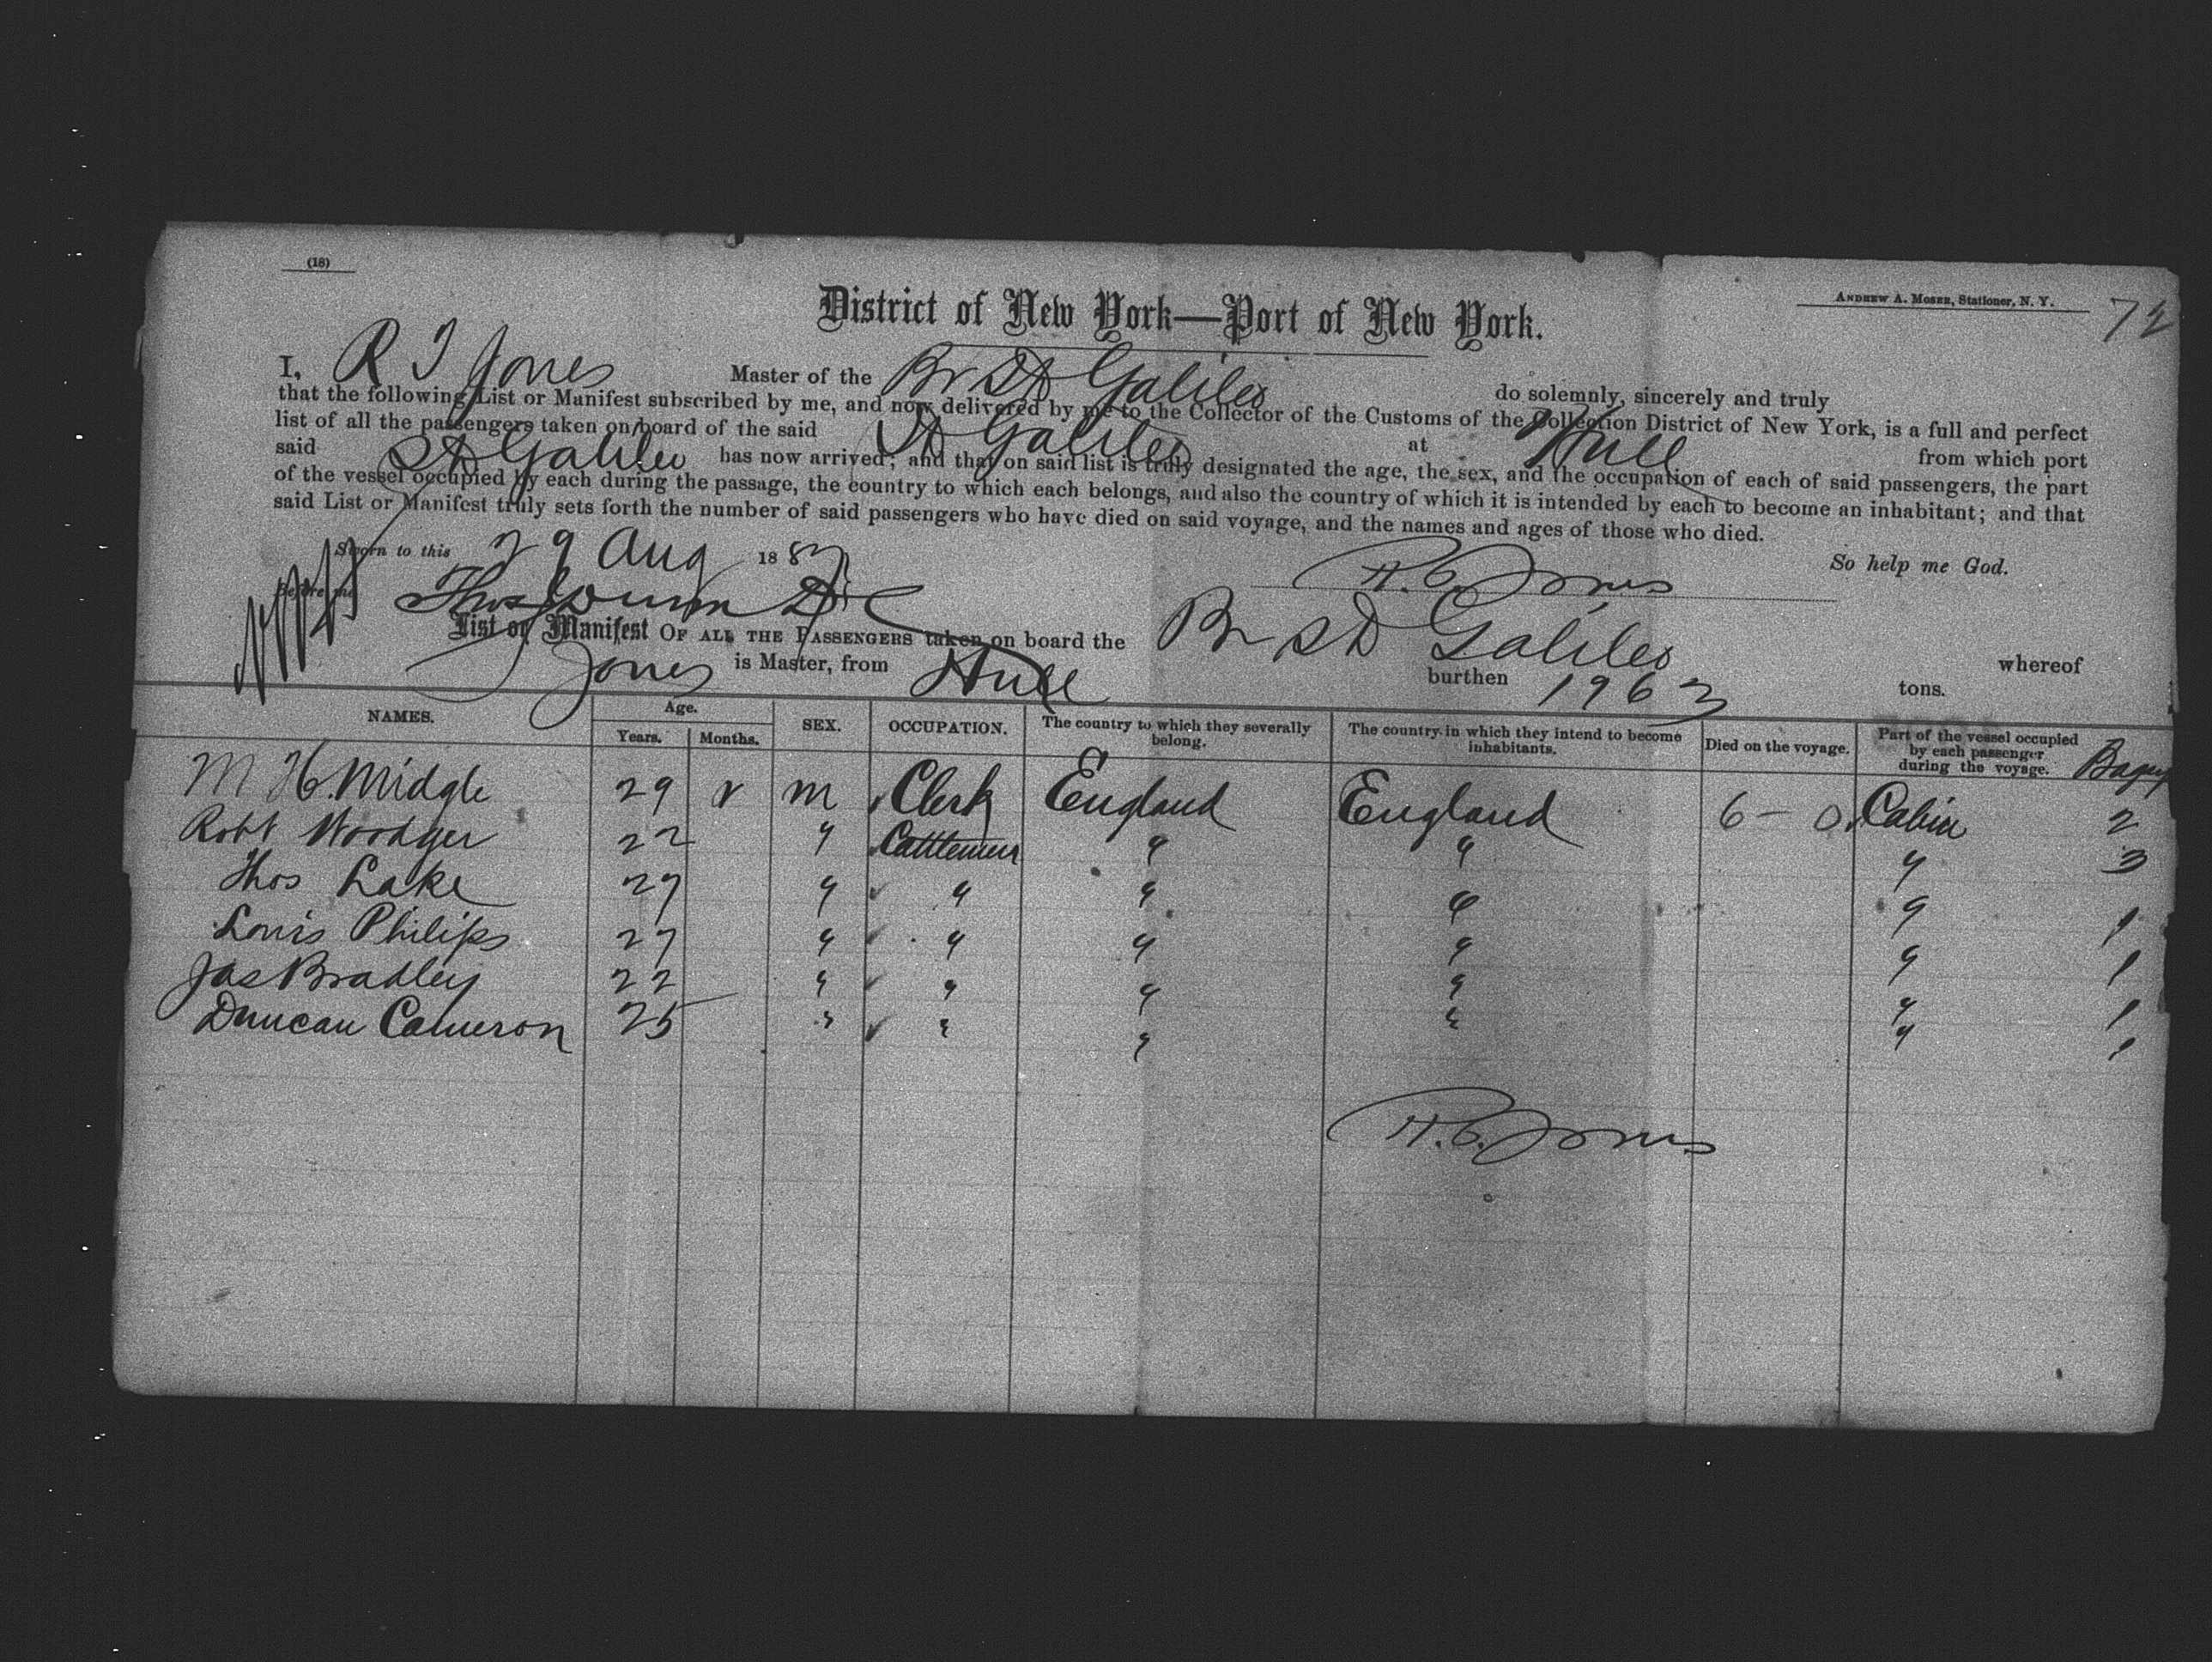 (18)
ANDREW A. MOSER, Stationer, N. Y.
72
District of New York—Port of New York.
I, R T Jones Master of the Br SS Galileo do solemnly, sincerely and truly
that the following List or Manifest subscribed by me, and now delivered by me to the Collector of the Customs of the Collection District of New York, is a full and perfect
list of all the passengers taken on board of the said SS Galileo at Hull from which port
said SS Galileo has now arrived; and that on said list is truly designated the age, the sex, and the occupation of each of said passengers, the part
of the vessel occupied by each during the passage, the country to which each belongs, and also the country of which it is intended by each to become an inhabitant; and that
said List or Manifest truly sets forth the number of said passengers who have died on said voyage, and the names and ages of those who died.
Sworn to this 29 Aug 188
So help me God.
Before me
Jones
List or Manifest OF ALL THE PASSENGERS taken on board the Br SS Galileo whereof
Jones is Master, from Hull burthen 1963 tons.
NAMES. Age. Years. Months. SEX. OCCUPATION. The country to which they severally belong. The country in which they intend to become inhabitants. Died on the voyage. Part of the vessel occupied by each passenger during the voyage.
M H. Midgle 29 m Clerk England England 6 - 0 Cabin 2
Robt Woodger 22 " Cattlemen " " " 3
Thos Lake 27 " " " " " 1
Louis Philips 27 " " " " " 1
Jas Bradley 22 " " " " " 1
Duncan Cameron 25 " " " " " 1
Jones